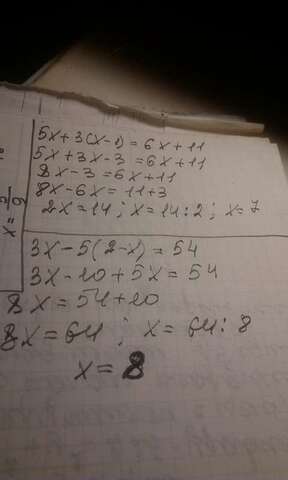 5x+3(x-1)=6x+11
5x+3x-3=6x+11
8x-3=6x+11
8x-6x=11+3
2x=14; x=14:2; x=7
3x-5(2-x)=54
3x-10+5x=54
8x=54+10
8x=64; x=64:8
x=8